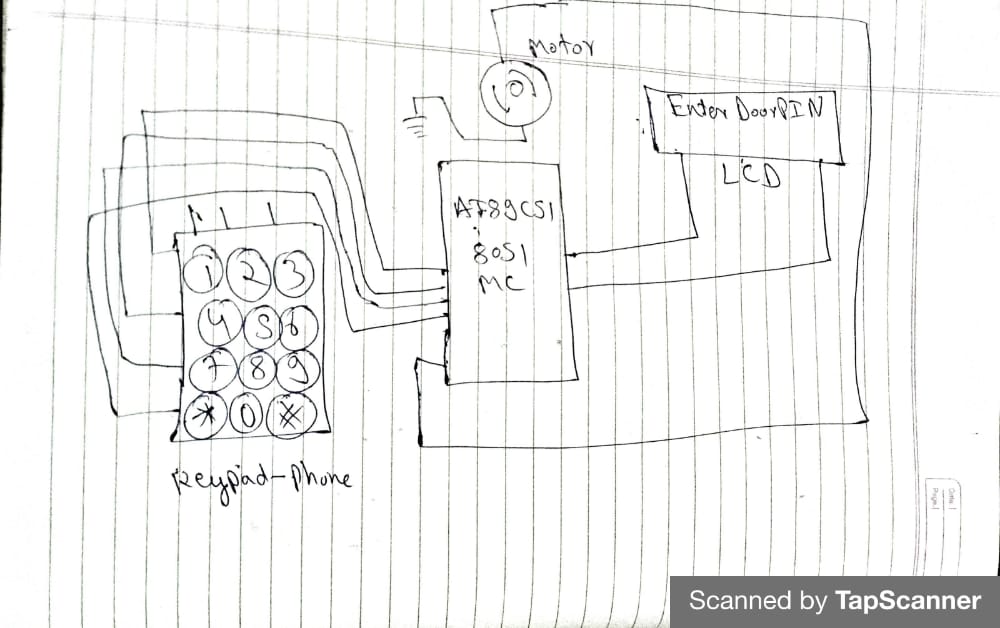 Motor
Enter DoorPIN
LCD
AT89C51
8051
MC
1 2 3
4 5 6
7 8 9
* 0 #
Keypad-Phone
Date / /
Page /
Scanned by TapScanner